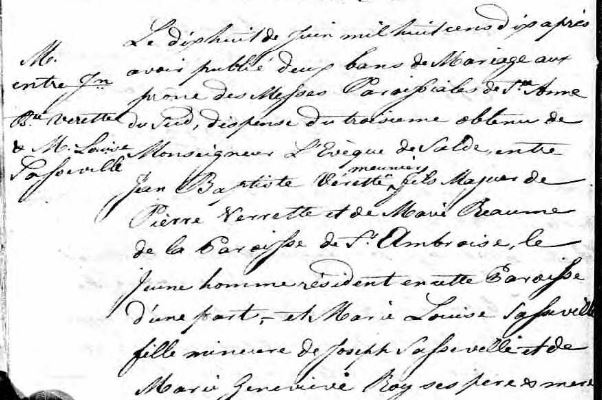 M.
entre Jn
Bte Verette
& M. Louise
Sasseville
Le dixhuit de Juin mil huit cens dix après
avoir publié deux bans de Mariage aux
prône des Messes Paroissiales de Ste Anne
du Sud, dispense du troisieme obtenu de
Monseigneur L'Evêque de Salde, entre
meunier
Jean Baptiste Verette, fils Majeur de
Pierre Verrette et de Marie Reaume
de la Paroisse de St Ambroise, le
Jeune homme résident en cette Paroisse
d'une part, et Marie Louise Sasseville
fille mineure de Joseph Sasseville et de
Marie Geneviève Roy ses pere & mere